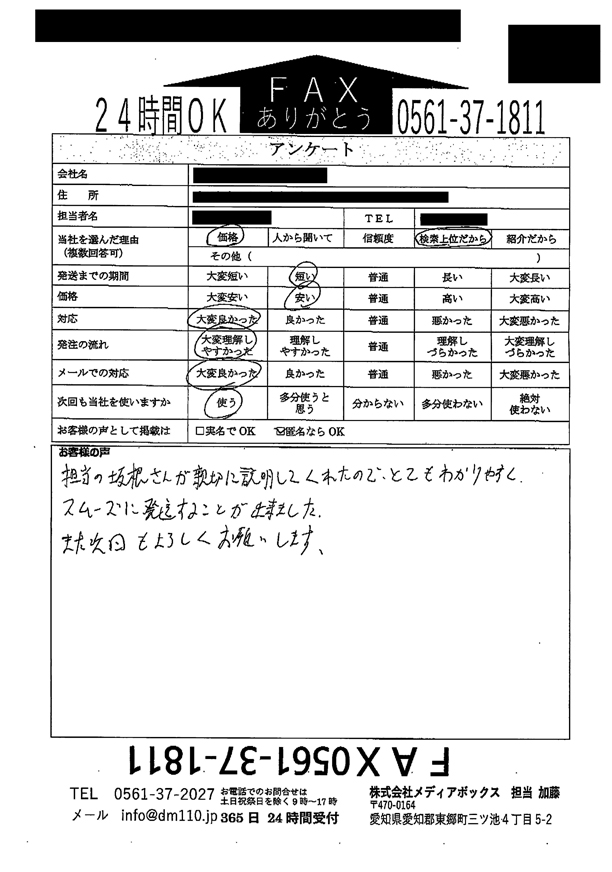 FAX
ありがとう
24時間OK
0561-37-1811
アンケート
会社名
住 所
担当者名 TEL
当社を選んだ理由
(複数回答可)
価格 人から聞いて 信頼度 検索上位だから 紹介だから
その他 ( )
発送までの期間 大変短い 短い 普通 長い 大変長い
価格 大変安い 安い 普通 高い 大変高い
対応 大変良かった 良かった 普通 悪かった 大変悪かった
発注の流れ 大変理解し 理解し 普通 理解し 大変理解し
やすかった やすかった づらかった づらかった
メールでの対応 大変良かった 良かった 普通 悪かった 大変悪かった
次回も当社を使いますか 使う 多分使うと 分からない 多分使わない 絶対
思う 使わない
お客様の声として掲載は □実名でOK ☑匿名ならOK
お客様の声
担当の坂根さんが親切に説明してくれたので、とてもわかりやすく、
スムーズに発送することが出来ました。
また次回もよろしくお願いします、
FAX0561-37-1811
TEL 0561-37-2027 お電話でのお問合せは
土日祝祭日を除く9時~17時
メール info@dm110.jp 365日 24時間受付
株式会社メディアボックス 担当 加藤
〒470-0164
愛知県愛知郡東郷町三ツ池4丁目5-2